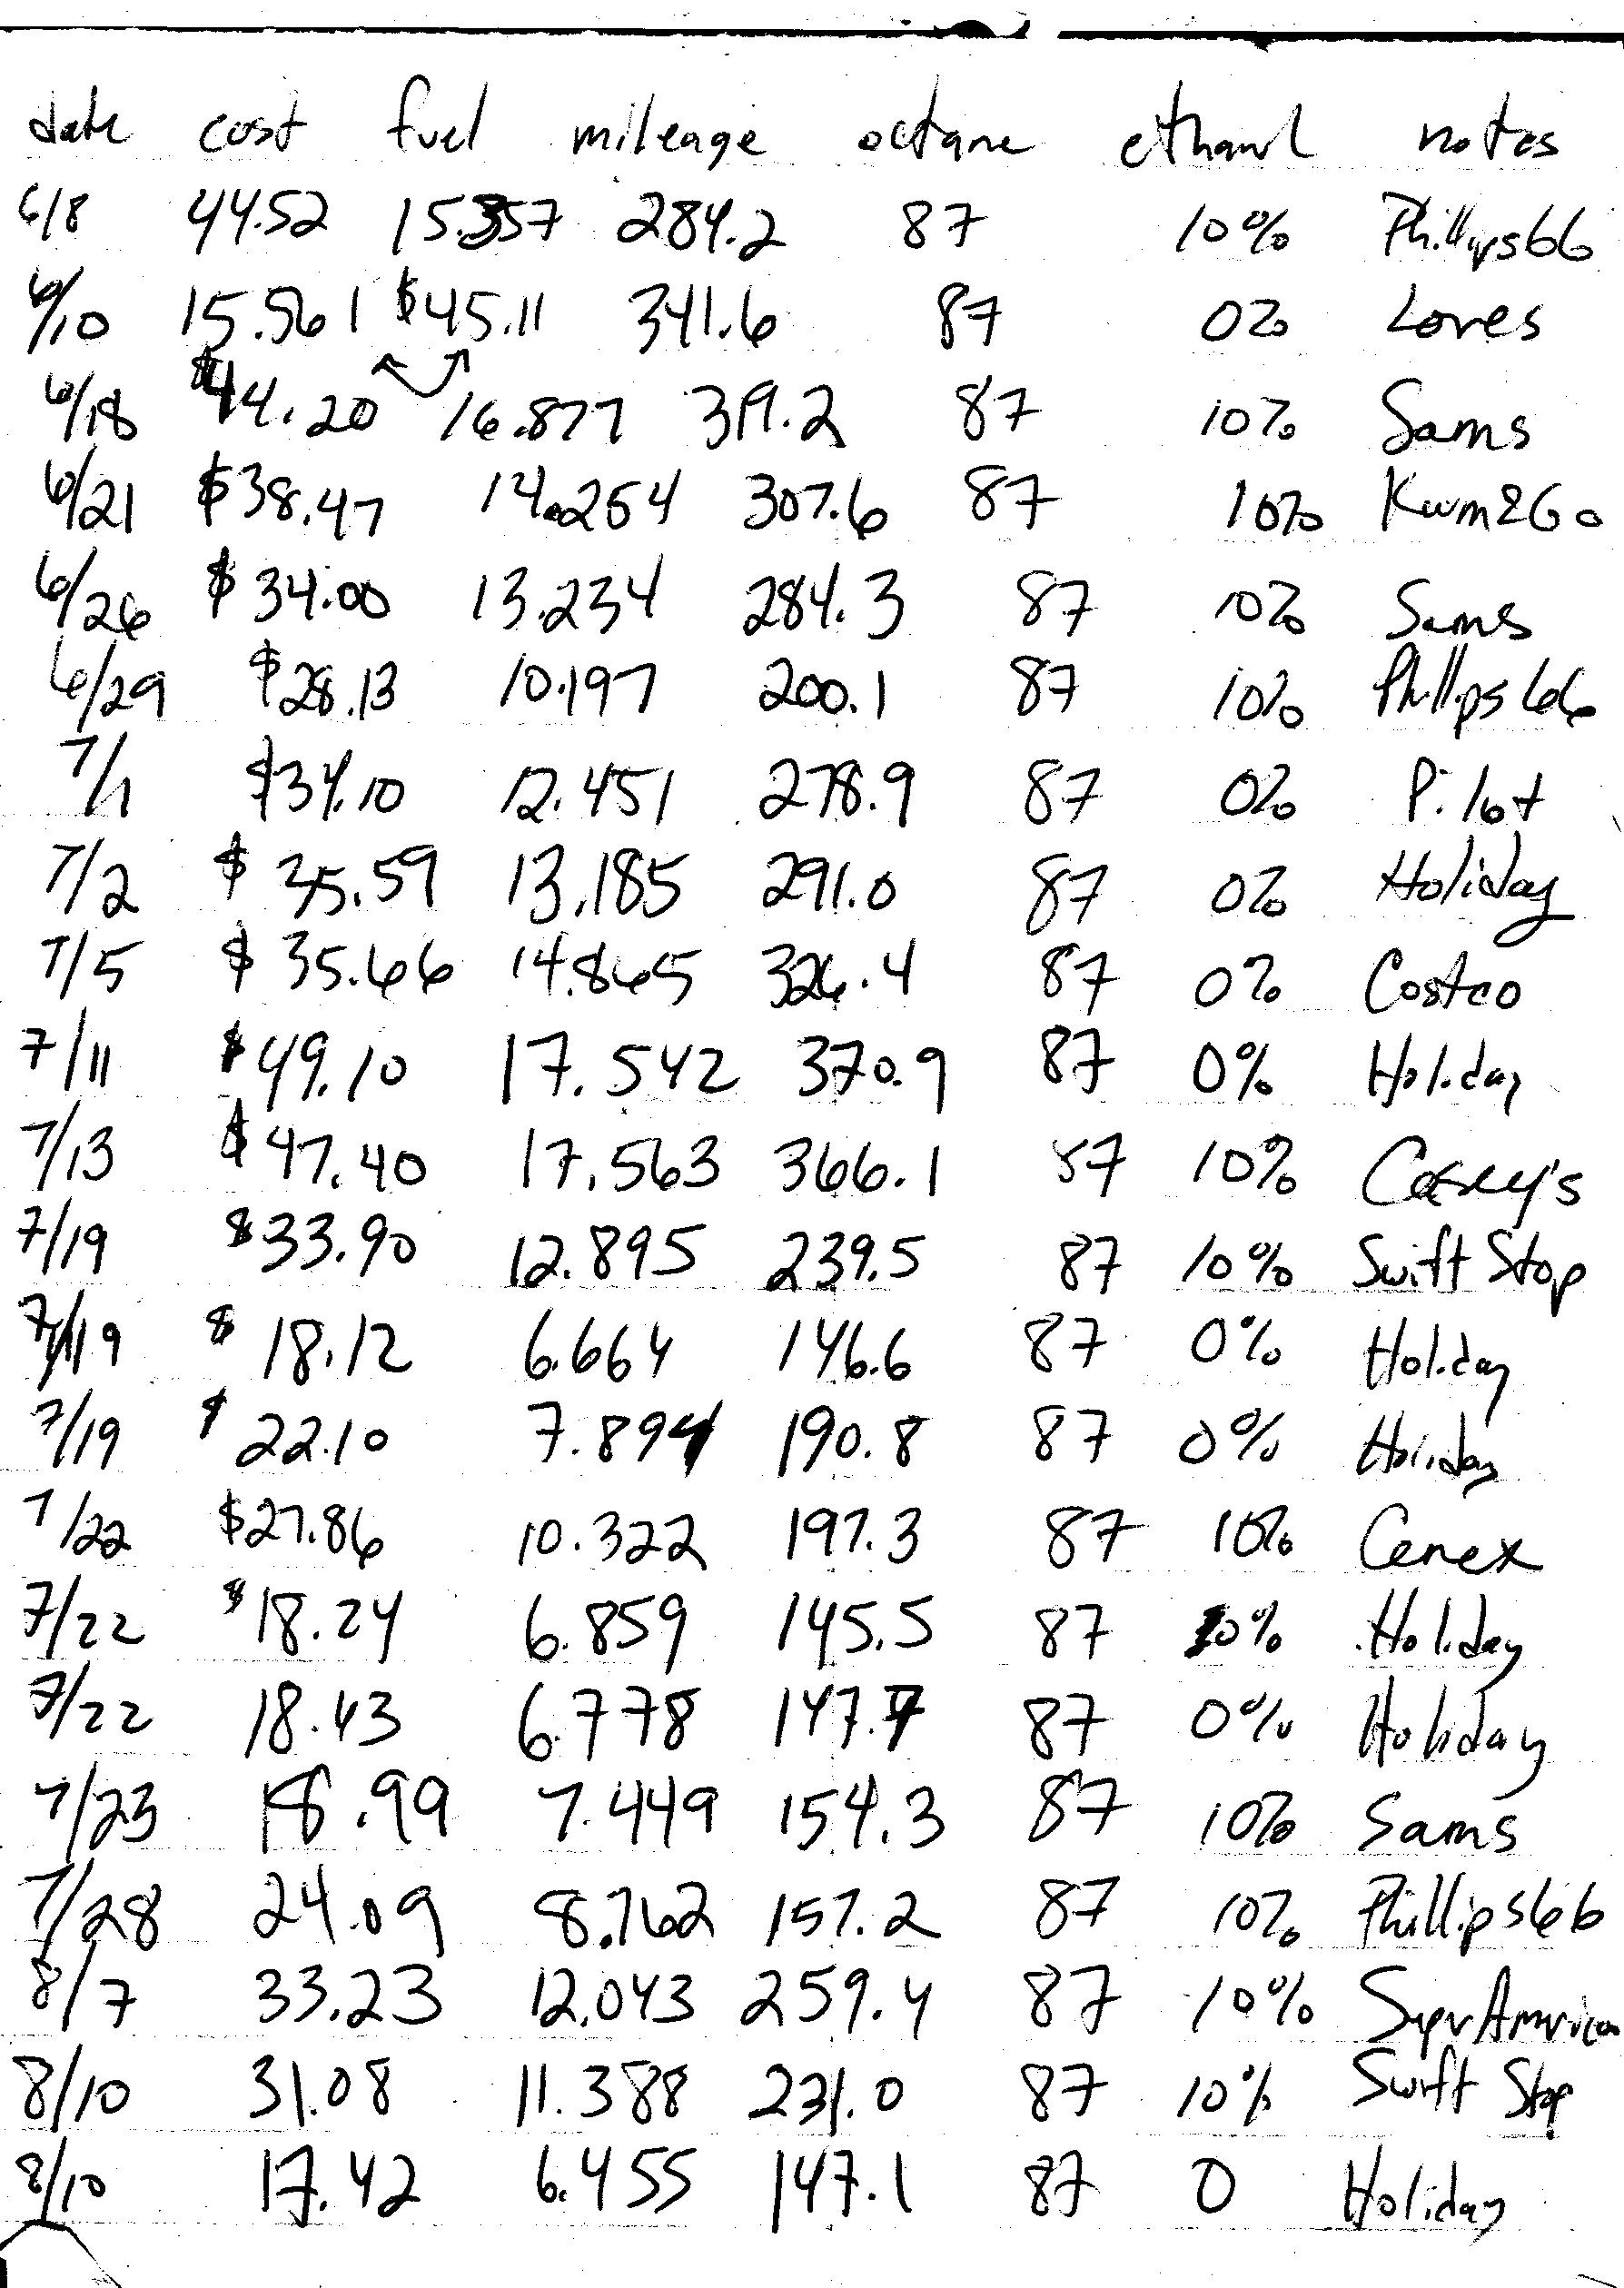 date cost fuel mileage octane ethanol notes
6/8 44.52 15.357 284.2 87 10% Phillips66
6/10 15.561 $45.11 341.6 87 0% Loves
6/18 $44.20 16.877 319.2 87 10% Sams
6/21 $38.47 14.264 307.6 87 10% Kum&Go
6/26 $34.00 13.234 284.3 87 10% Sams
6/29 $28.13 10.197 200.1 87 10% Phillips66
7/1 $34.10 12.451 278.9 87 0% Pilot
7/2 $35.59 13.185 291.0 87 0% Holiday
7/5 $35.66 14.865 326.4 87 0% Costco
7/11 $49.10 17.542 370.9 87 0% Holiday
7/13 $47.40 17.563 366.1 87 10% Casey's
7/19 $33.90 12.895 239.5 87 10% Swift Stop
7/19 $18.12 6.664 146.6 87 0% Holiday
7/19 $22.10 7.894 190.8 87 0% Holiday
7/22 $27.86 10.322 197.3 87 10% Cenex
7/22 $18.24 6.859 145.5 87 10% Holiday
7/22 18.43 6.778 147.7 87 0% Holiday
7/23 18.99 7.449 154.3 87 10% Sams
7/28 24.09 8.762 157.2 87 10% Phillips66
8/7 33.23 12.043 259.4 87 10% SuperAmerica
8/10 31.08 11.388 231.0 87 10% Swift Stop
8/10 17.42 6.455 147.1 87 0 Holiday